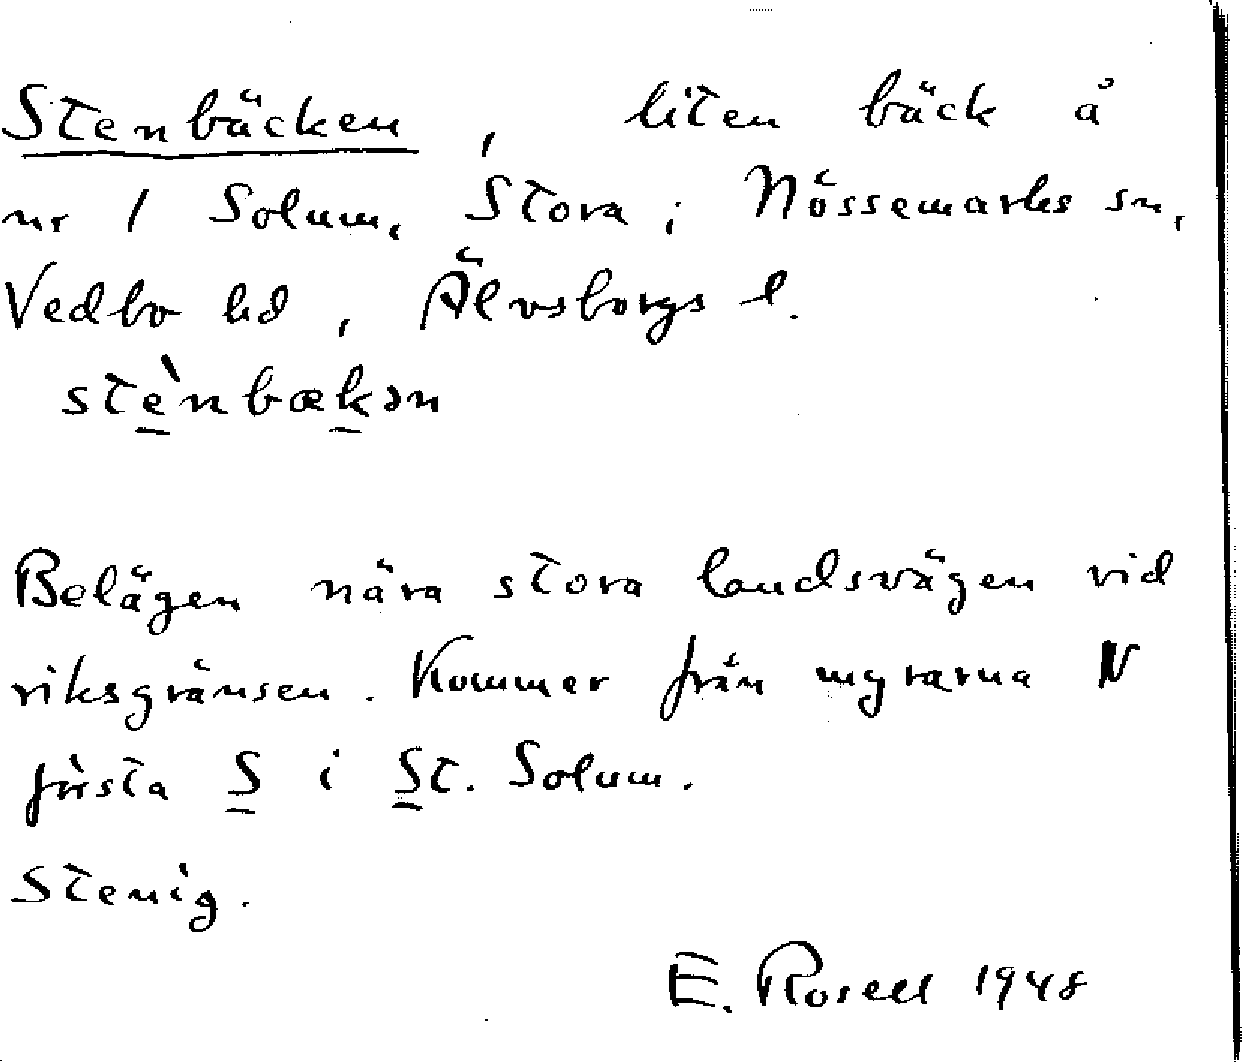 Stenbäcken, liten bäck å
nr 1 Solum, Stora i Nössemarks sn,
Vedbo hd, Älvsborgs l.
stènbækən
Belägen nära stora landsvägen vid
riksgränsen. Kommer från myrarna N
första S i St. Solum.
Stenig.
E. Rosell 1948